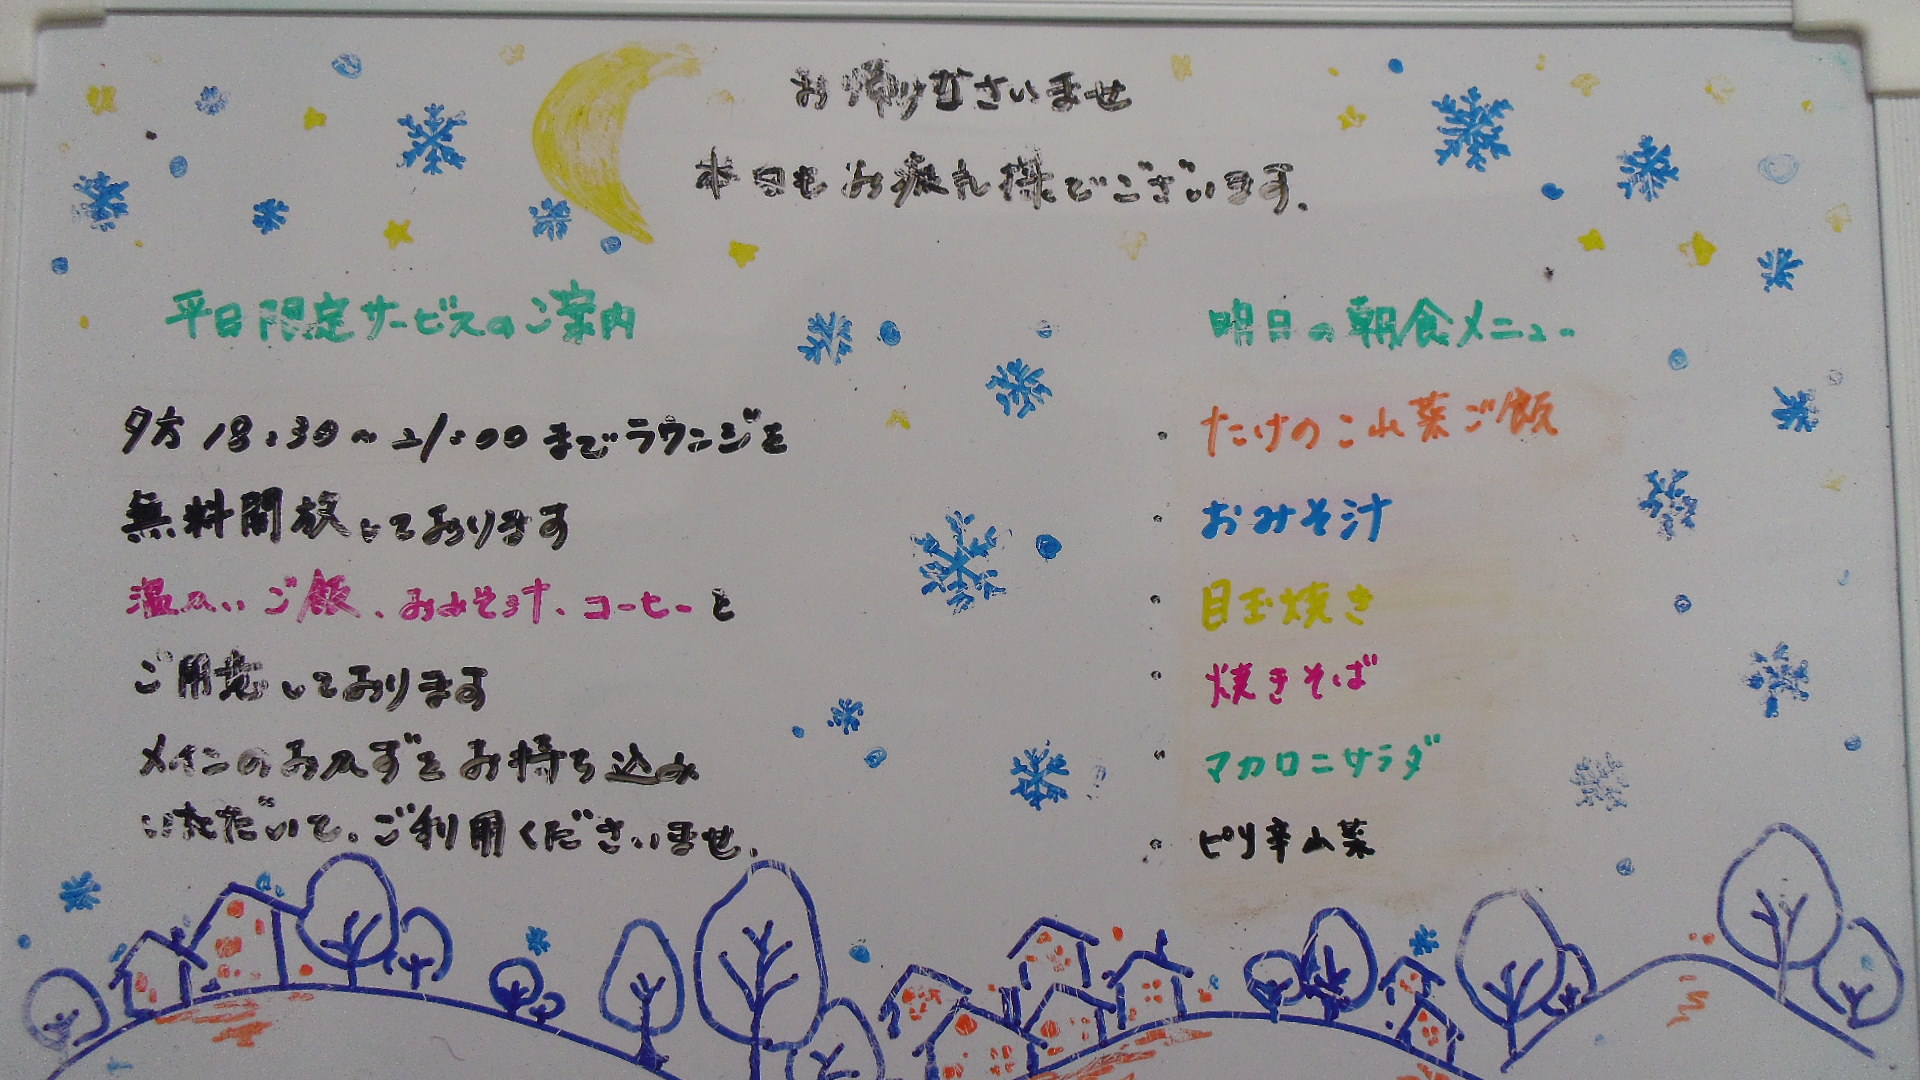 お帰りなさいませ
本日もお疲れ様でございます.
平日限定サービスのご案内
夕方 18:30～21:00 までラウンジを
無料開放しております
温かいご飯、おみそ汁、コーヒーを
ご用意しております
メインのおかずをお持ち込み
いただいて、ご利用くださいませ.
明日の朝食メニュー
・たけのこ山菜ご飯
・おみそ汁
・目玉焼き
・焼きそば
・マカロニサラダ
・ピリ辛山菜